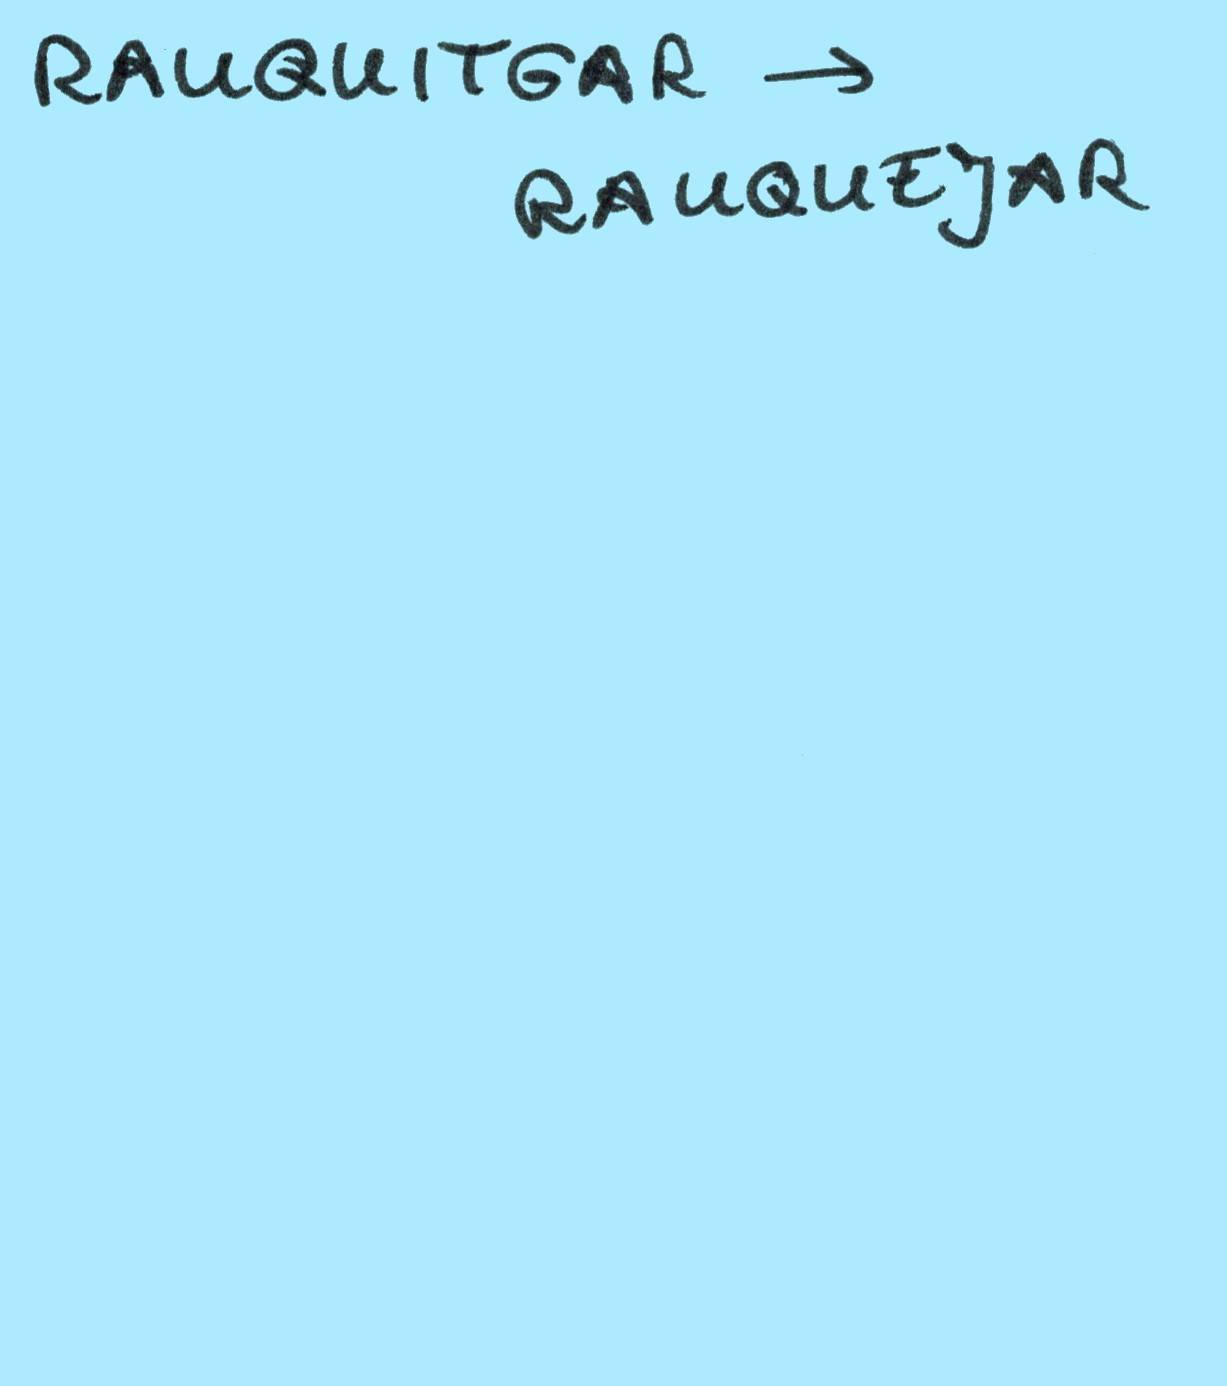 RAUQUITGAR →
RAUQUEJAR